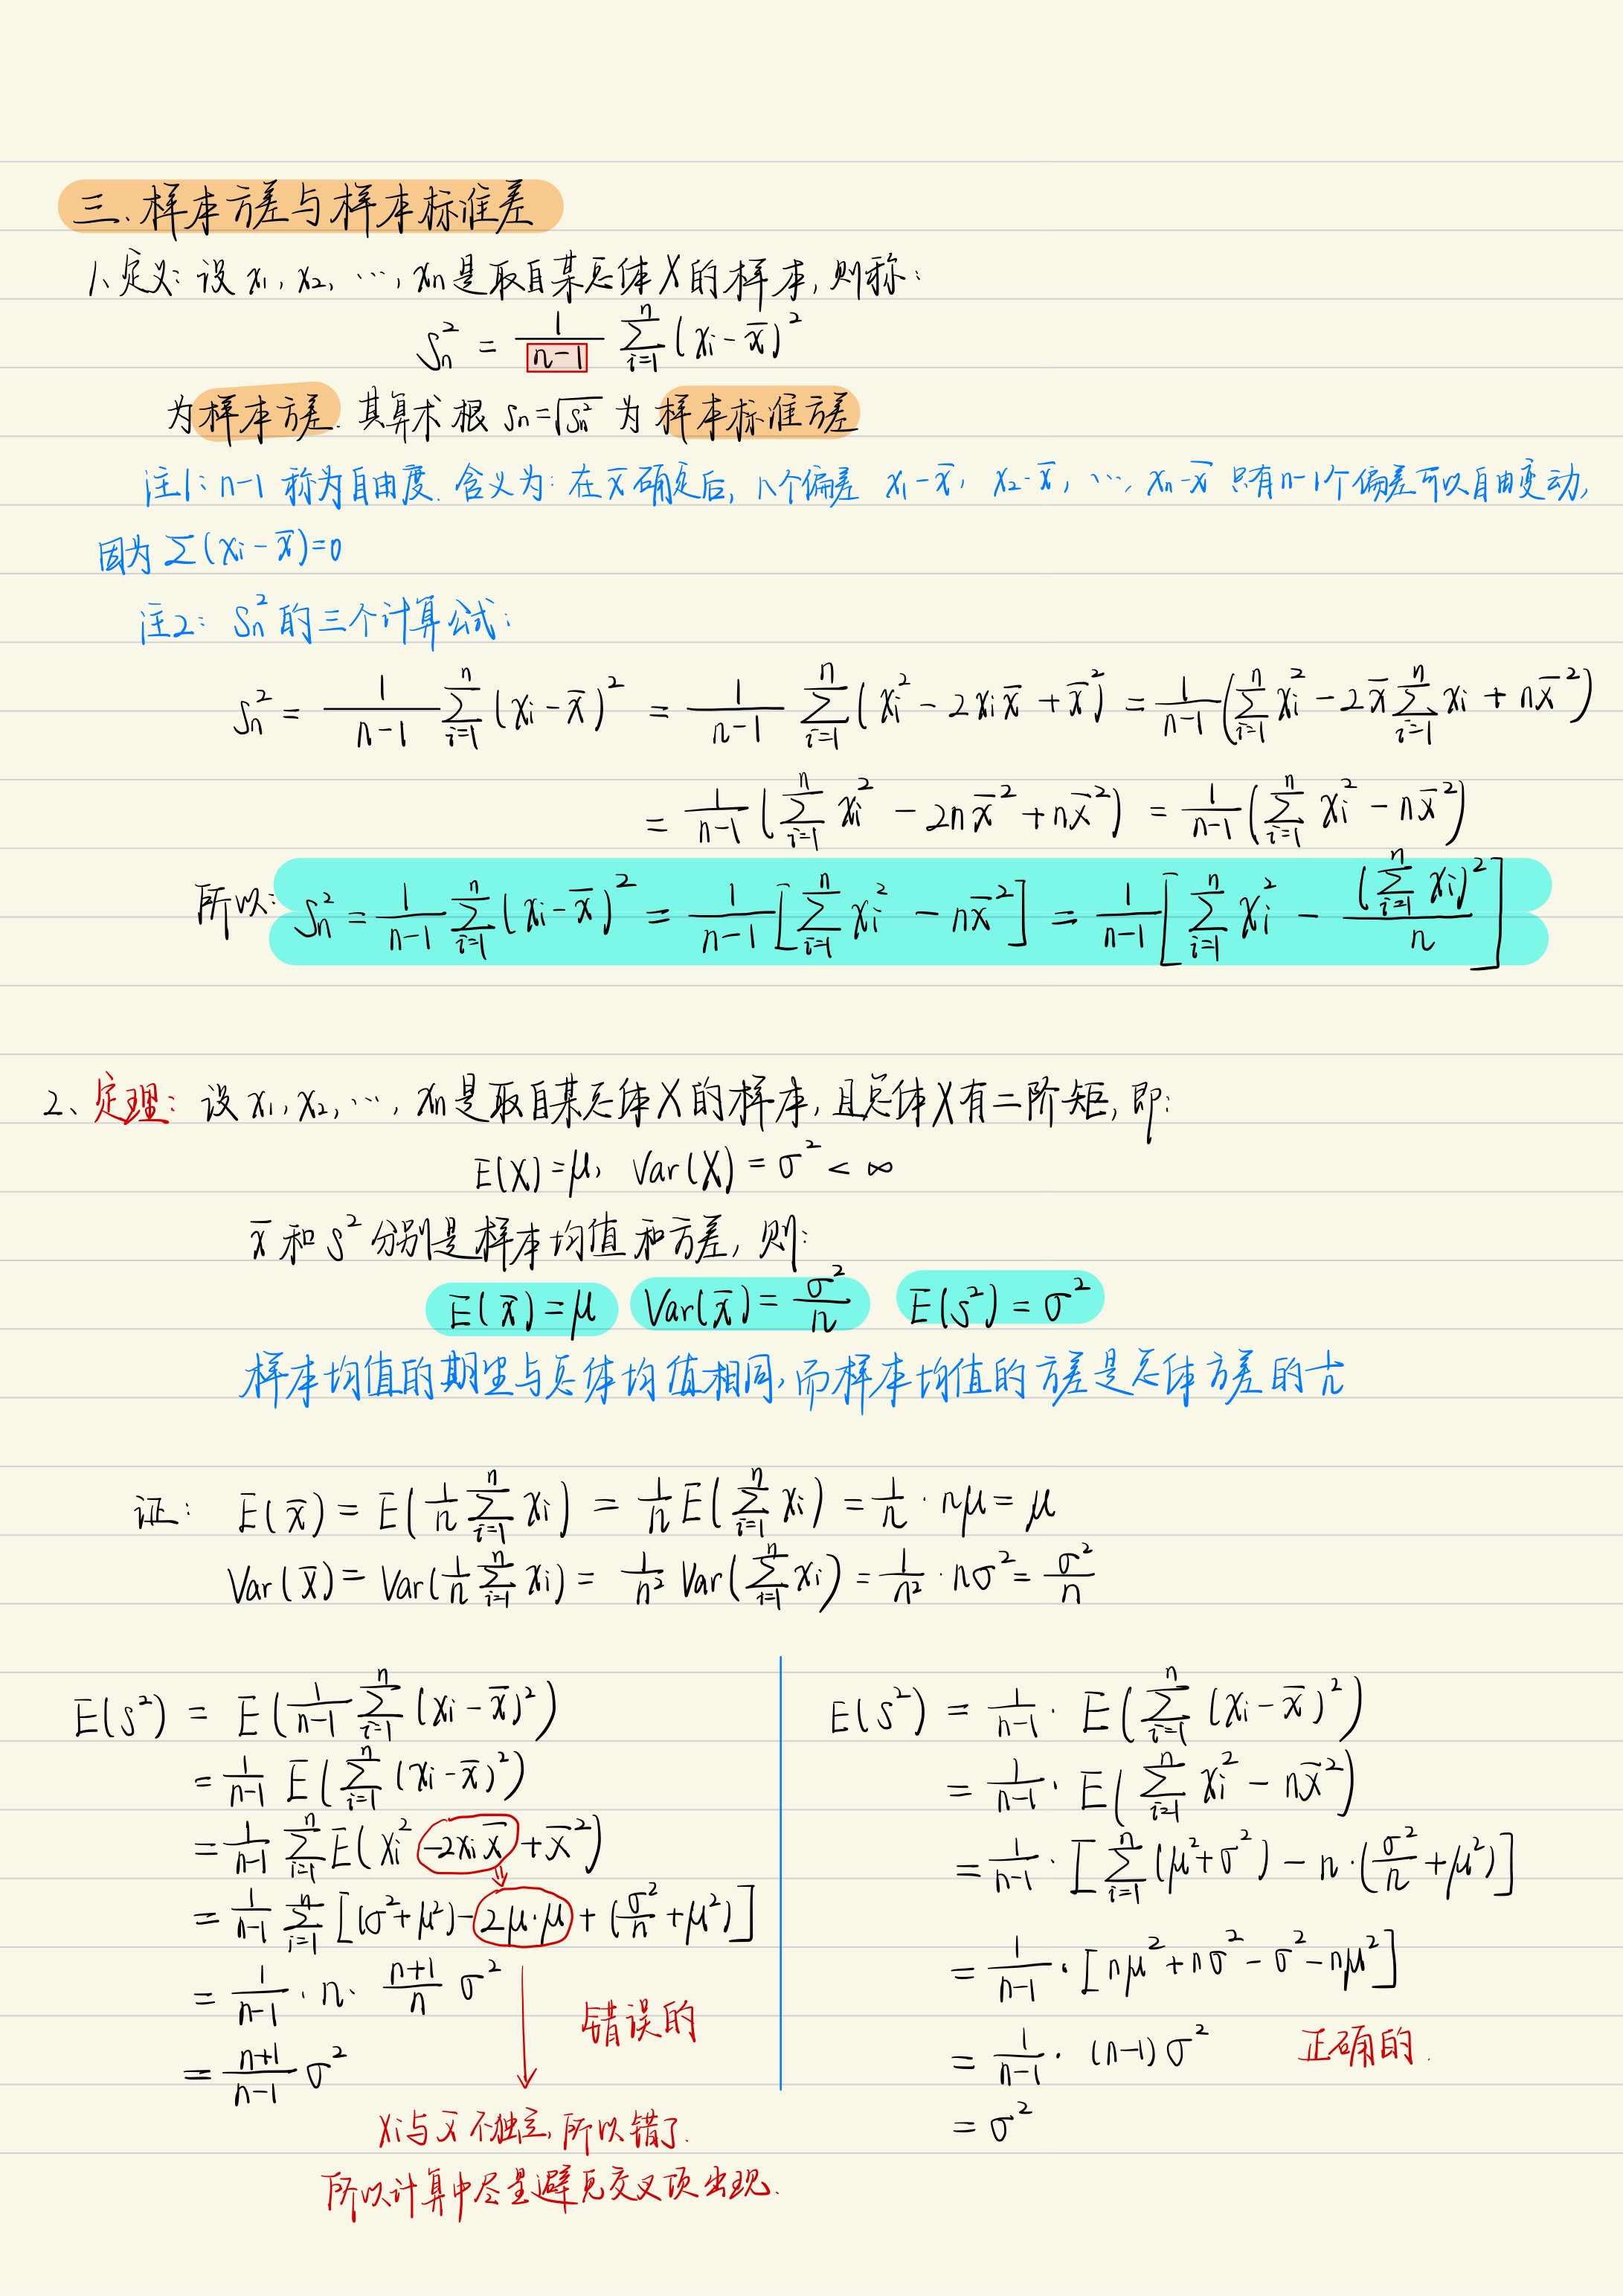 三、样本方差与样本标准差
1、定义：设 x₁, x₂, …, xₙ 是取自某总体X的样本，则称：
Sₙ² = 1/(n-1) ∑_{i=1}^{n} (xᵢ - x̄)²
为样本方差. 其算术根 Sₙ = √Sₙ² 为 样本标准方差
注1：n-1 称为自由度. 含义为：在 x̄ 确定后，n个偏差 x₁-x̄, x₂-x̄, …, xₙ-x̄ 只有n-1个偏差可以自由变动,
因为 ∑(xᵢ - x̄)=0
注2：Sₙ² 的三个计算公式：
Sₙ² = 1/(n-1) ∑_{i=1}^{n} (xᵢ - x̄)² = 1/(n-1) ∑_{i=1}^{n} (xᵢ² - 2xᵢx̄ + x̄²) = 1/(n-1) (∑_{i=1}^{n} xᵢ² - 2x̄ ∑_{i=1}^{n} xᵢ + nx̄²)
= 1/(n-1) (∑_{i=1}^{n} xᵢ² - 2nx̄² + nx̄²) = 1/(n-1) (∑_{i=1}^{n} xᵢ² - nx̄²)
所以: Sₙ² = 1/(n-1) ∑_{i=1}^{n} (xᵢ - x̄)² = 1/(n-1) [∑_{i=1}^{n} xᵢ² - nx̄²] = 1/(n-1) [∑_{i=1}^{n} xᵢ² - (∑_{i=1}^{n} xᵢ)²/n]
2、定理：设 x₁, x₂, …, xₙ 是取自某总体X的样本, 且总体X有二阶矩, 即：
E(X)=μ, Var(X) = σ² < ∞
x̄ 和 s² 分别是样本均值和方差, 则：
E(x̄)=μ Var(x̄)= σ²/n E(s²) = σ²
样本均值的期望与总体均值相同, 而样本均值的方差是总体方差的 1/n
证: E(x̄) = E(1/n ∑_{i=1}^{n} xᵢ) = 1/n E(∑_{i=1}^{n} xᵢ) = 1/n · nμ = μ
Var(x̄) = Var(1/n ∑_{i=1}^{n} xᵢ) = 1/n² Var(∑_{i=1}^{n} xᵢ) = 1/n² · nσ² = σ²/n
E(s²) = E(1/(n-1) ∑_{i=1}^{n} (xᵢ - x̄)²)
= 1/(n-1) E(∑_{i=1}^{n} (xᵢ - x̄)²)
= 1/(n-1) ∑_{i=1}^{n} E(xᵢ² -2xᵢx̄ + x̄²)
= 1/(n-1) ∑_{i=1}^{n} [(σ²+μ²) - 2μ·μ + (σ²/n + μ²)]
= 1/(n-1) · n · (n+1)/n σ²
错误的
= (n+1)/(n-1) σ²
xᵢ与 x̄ 不独立, 所以错了.
所以计算中尽量避免交叉项出现.
E(s²) = 1/(n-1) · E(∑_{i=1}^{n} (xᵢ - x̄)²)
= 1/(n-1) · E(∑_{i=1}^{n} xᵢ² - nx̄²)
= 1/(n-1) · [∑_{i=1}^{n} (μ²+σ²) - n·(σ²/n + μ²)]
= 1/(n-1) · [nμ² + nσ² - σ² - nμ²]
= 1/(n-1) · (n-1)σ² 正确的.
= σ²